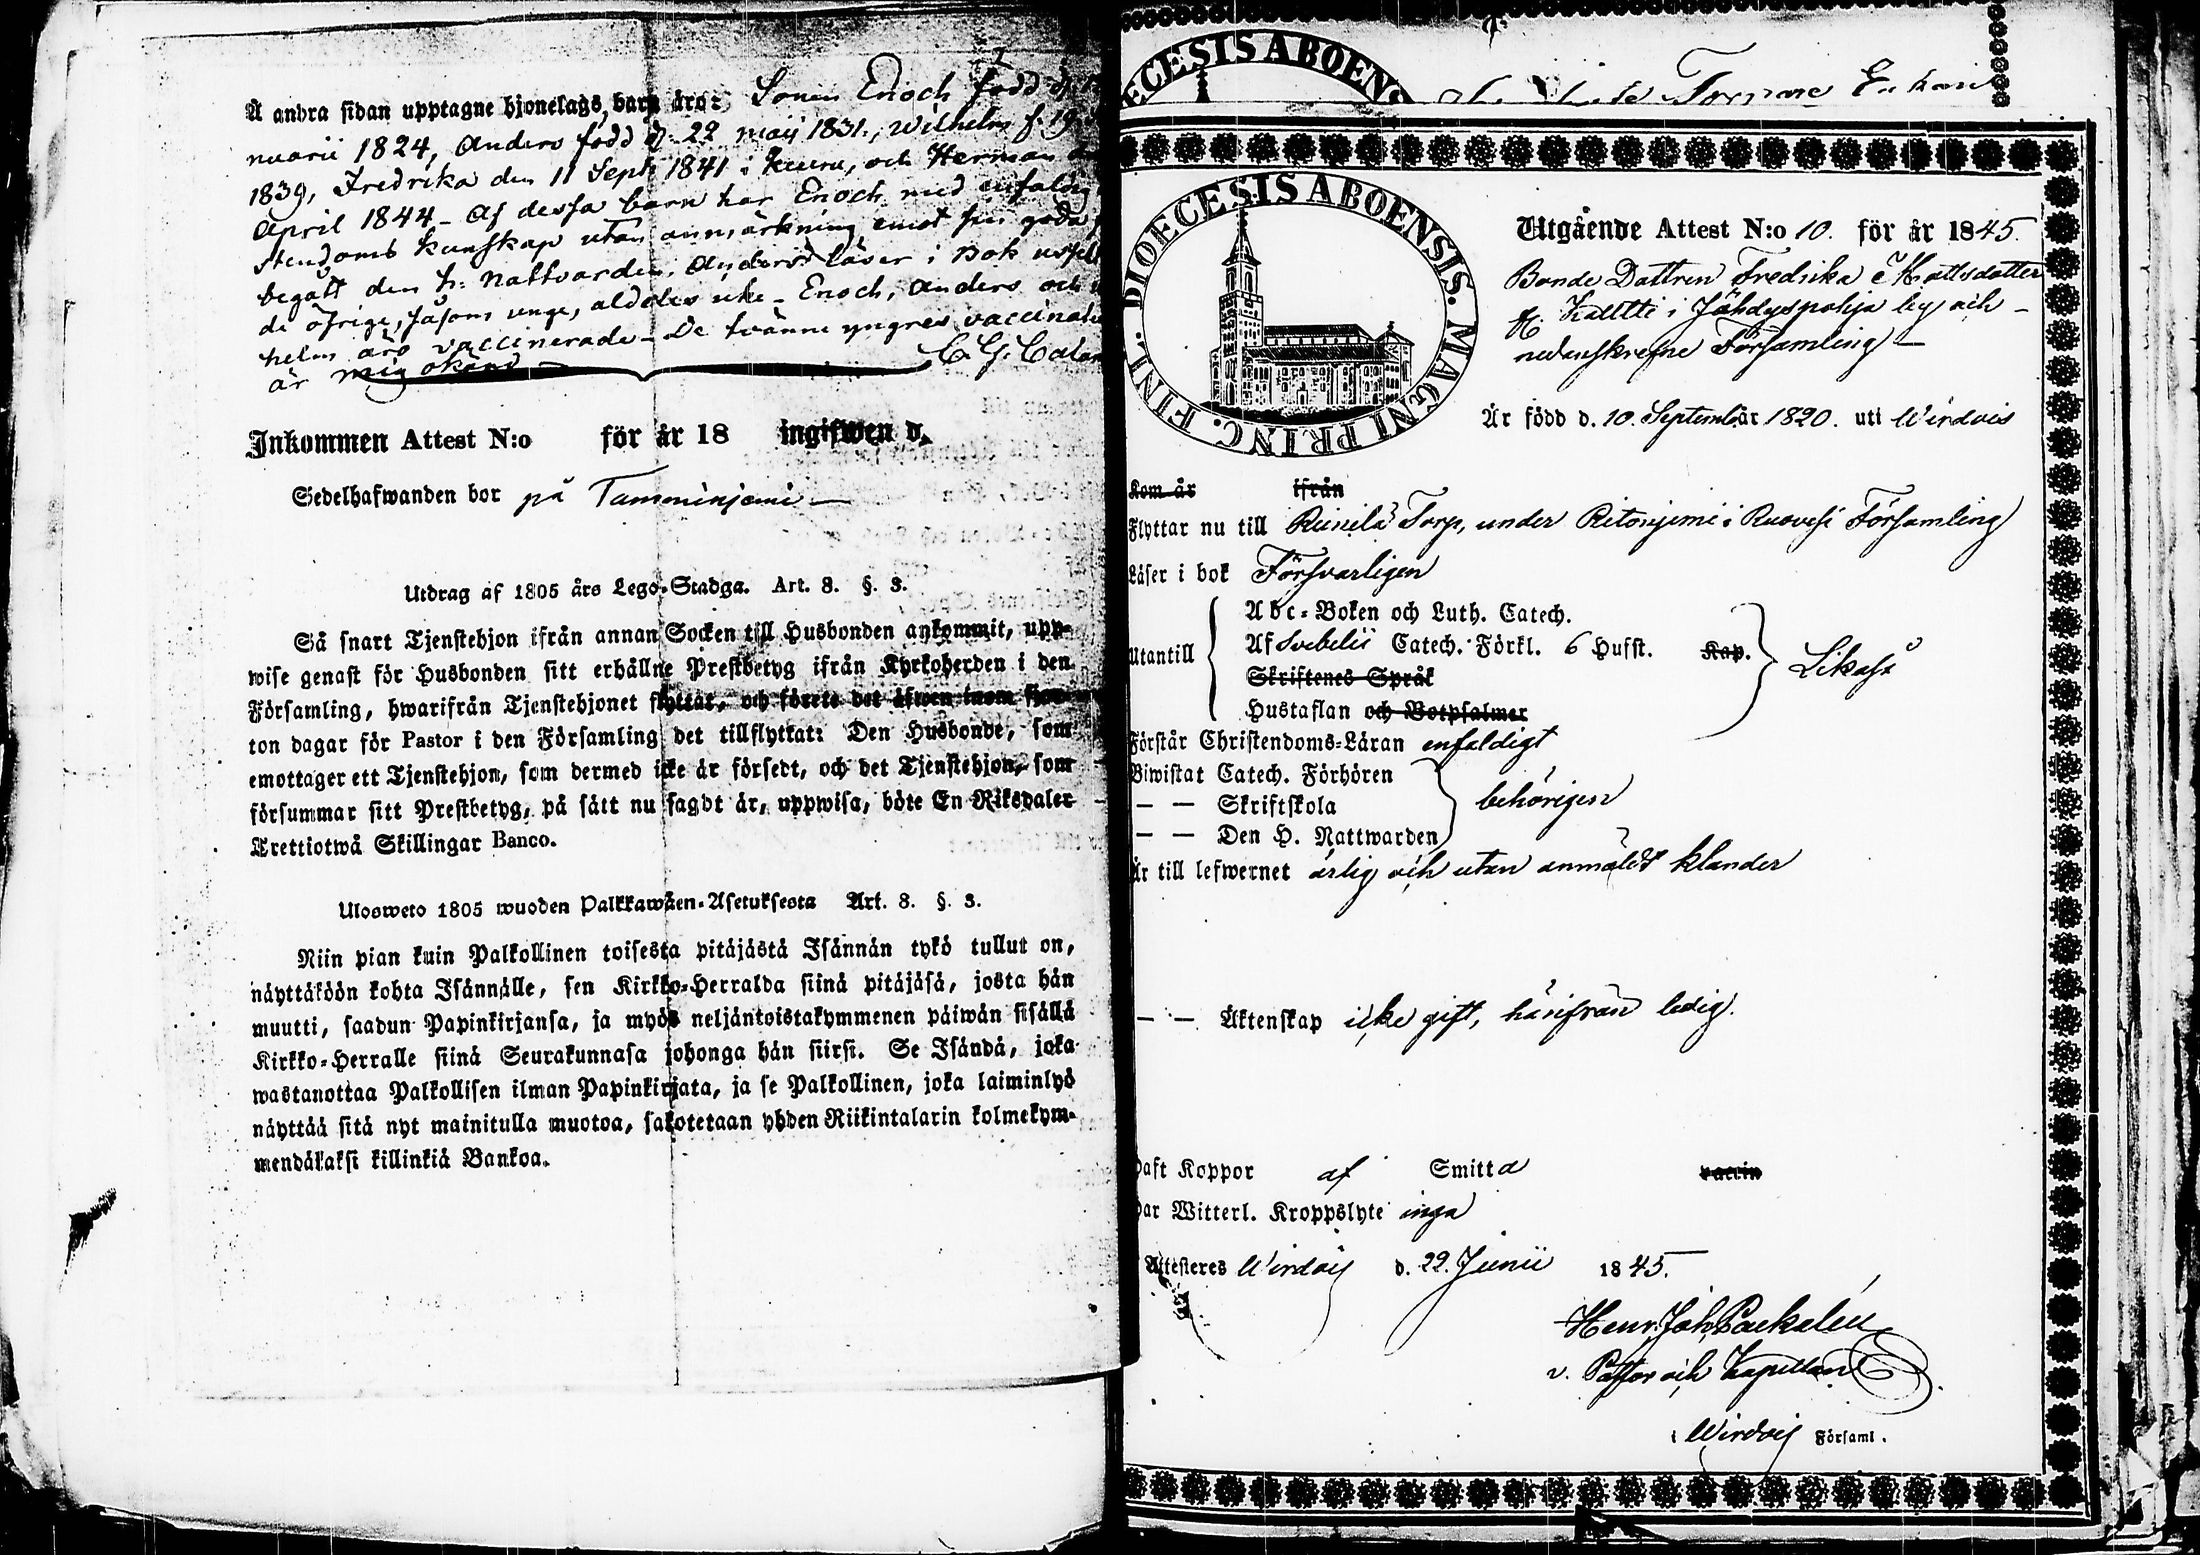 Å andra sidan upptagne hjonelags barn äro: Sonen Enoch född d.
nuarii 1824, Anders född d. 22 maij 1831, Wilhelm f. 19
1839, Fredrika den 11 Sept 1841 i Kuru, och Herman den
April 1844 – Af dessa barn har Enoch med enfaldig
stendoms kunskap utan anmärkning emot sin goda
begått den h. Nattvarden. Anders läser i Bok
de öfrige, såsom unge, aldeles icke – Enoch, Anders och
helm äro vaccinerade – De tvänne yngres vaccination
är mig okänd – C. G.
Inkommen Attest N:o för år 18 ingifwen d.
Sedelhafwanden bor på Tamminjemi –
Utdrag af 1805 års Lego-Stadga. Art. 8. §. 3.
Så snart Tjenstehjon ifrån annan Socken till Husbonden ankommit, upp-
wise genast för Husbonden sitt erhållne Prestbetyg ifrån Kyrkoherden i den
Församling, hwarifrån Tjenstehjonet flyttat, och förete det äfwen inom fjor-
ton dagar för Pastor i den Församling det tillflyttat: Den Husbonde, som
emottager ett Tjenstehjon, som dermed icke är försedt, och det Tjenstehjon, som
försummar sitt Prestbetyg, på sätt nu sagdt är, uppwisa, böte En Riksdaler
Trettiotwå Skillingar Banco.
Ulosweto 1805 wuoden Palkkawäen-Asetuksesta Art. 8. §. 3.
Niin pian kuin Palkollinen toisesta pitäjästä Isännän tykö tullut on,
näyttäköön kohta Isännälle, sen Kirkko-Herralda siinä pitäjäsä, josta hän
muutti, saadun Papinkirjansa, ja myös neljäntoistakymmenen päiwän sisällä
Kirkko-Herralle siinä Seurakunnasa johonga hän siirsi. Se Isändä, joka
wastanottaa Palkollisen ilman Papinkirjata, ja se Palkollinen, joka laiminlyö
näyttää sitä nyt mainitulla muotoa, sakotetaan yhden Riikintalarin kolmekym-
mendäkaksi killinkiä Bankoa.
ECESIS ABOENS
DIOECESIS ABOENSIS. MAGNI PRINC. FINL.
Utgående Attest N:o 10. för år 1845.
Bonde Dottren Fredrika Mattsdotter
fr. Kalttti i Jähdyspohja by och –
nedanskrefne Församling –
Är född d. 10. September år 1820. uti Wirdois
Kom år ifrån
Flyttar nu till Reinilä Torp, under Ritoniemi i Ruovesi Församling
Läser i bok Försvarligen
Utantill
Abc-Boken och Luth. Catech.
Af Svebelii Catech. Förkl. 6 Husst. Kap.
Skriftenes Språk
Hustaflan och Botpsalmer
Likaså
Förstår Christendoms-Läran enfaldigt
Biwistat Catech. Förhören
— — Skriftskola
— — Den H. Nattwarden
behörigen
Är till lefwernet ärlig och utan anmäldt klander
— — Äktenskap icke gift, härifrån ledig.
Haft Koppor af Smitta vaccin
Har Witterl. Kroppslyte inga
Attesteres Wirdois d. 22. Junii 1845.
Henr. Joh. Packalén
v. Pastor och Kapellan
i Wirdois Församl.